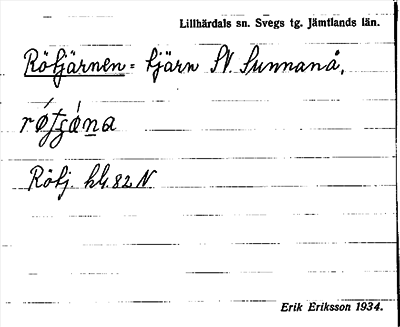 Lillhärdals sn. Svegs tg. Jämtlands län.
Rötjärnen = tjärn SV. Sunnanå.
Rötj. kbl. 82 N
Erik Eriksson 1934.